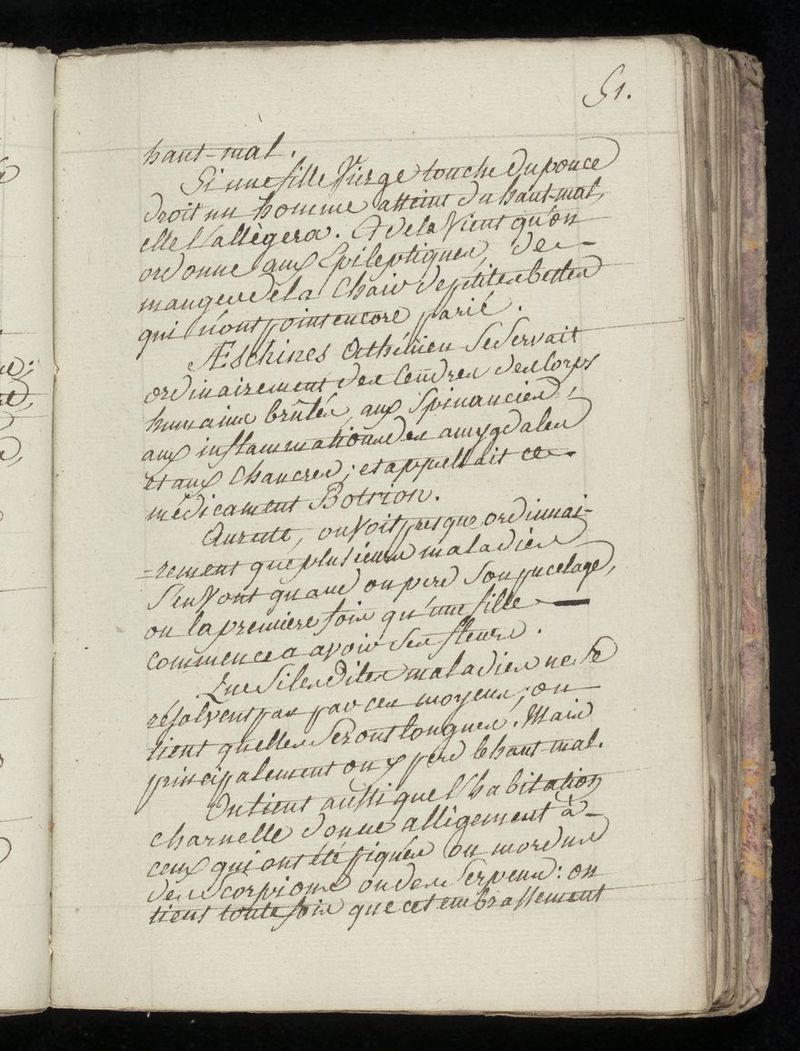 51.
haut-mal.
Si une fille Vierge touche du pouce
droit un homme atteint du haut-mal,
elle l'allègera. Et de la Vient qu'on
ordonne aux Epileptiques, de
manger de la Chair de petites bettes
qui n'ont point encore parié.
Æschines Athénien Se Servait
ordinairement des Cendres des Corps
humains brûlés, aux Spinancies,
aux inflammations des amygdales
et aux Chancres; et appellait ce
médicament Botrion.
Au reste, on Voit presque ordinnai-
-rement que plusieurs maladies
S'en Vont quand on perd Son pucelage,
ou la premiere fois qu'une fille
commence a avoir Ses fleurs.
Que Si lesdites maladies ne Se
résolvent pas par ces moyens; on
tient quelles Seront longues. Mais
principalement on y perd le haut mal.
On tient aussi que l'habitation
charnelle donne allègement à
ceux qui ont été piqués ou mordus
des Scorpions ou des Serpens: on
tient toute fois que cet embrassement